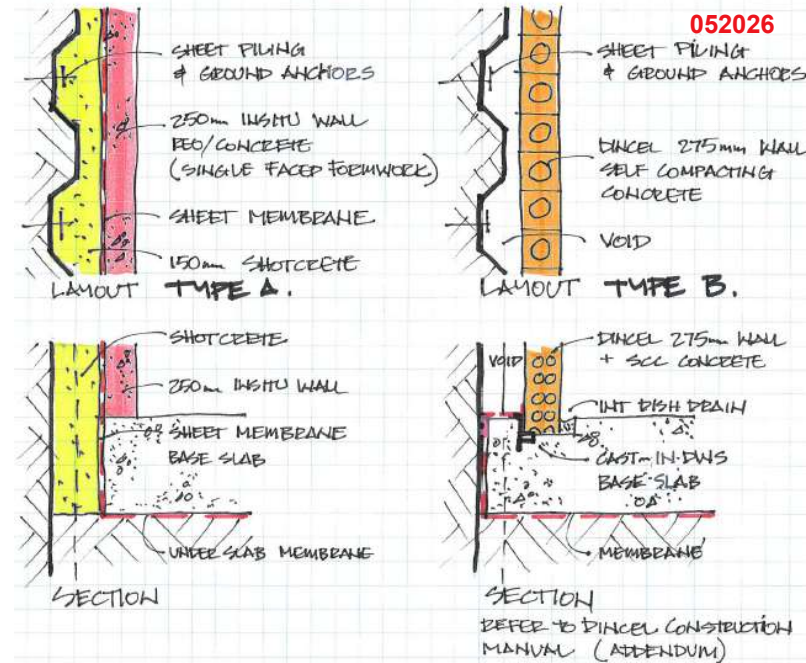 052026
SHEET PILING
& GROUND ANCHORS
250mm INSITU WALL
REO/CONCRETE
(SINGLE FACED FORMWORK)
SHEET MEMBRANE
150mm SHOTCRETE
LAYOUT TYPE A.
SHEET PILING
& GROUND ANCHORS
DINCEL 275mm WALL
SELF COMPACTING
CONCRETE
VOID
LAYOUT TYPE B.
SHOTCRETE
250mm INSITU WALL
SHEET MEMBRANE
BASE SLAB
UNDER SLAB MEMBRANE
SECTION
VOID
DINCEL 275mm WALL
+ SCC CONCRETE
INT DISH DRAIN
CAST-IN-DWS
BASE SLAB
MEMBRANE
SECTION
REFER TO DINCEL CONSTRUCTION
MANUAL (ADDENDUM)